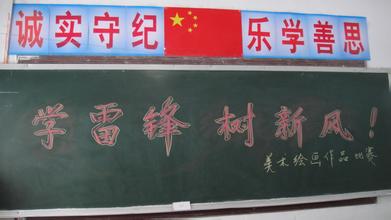 诚实守纪 乐学善思
学雷锋 树新风!
美术绘画作品比赛